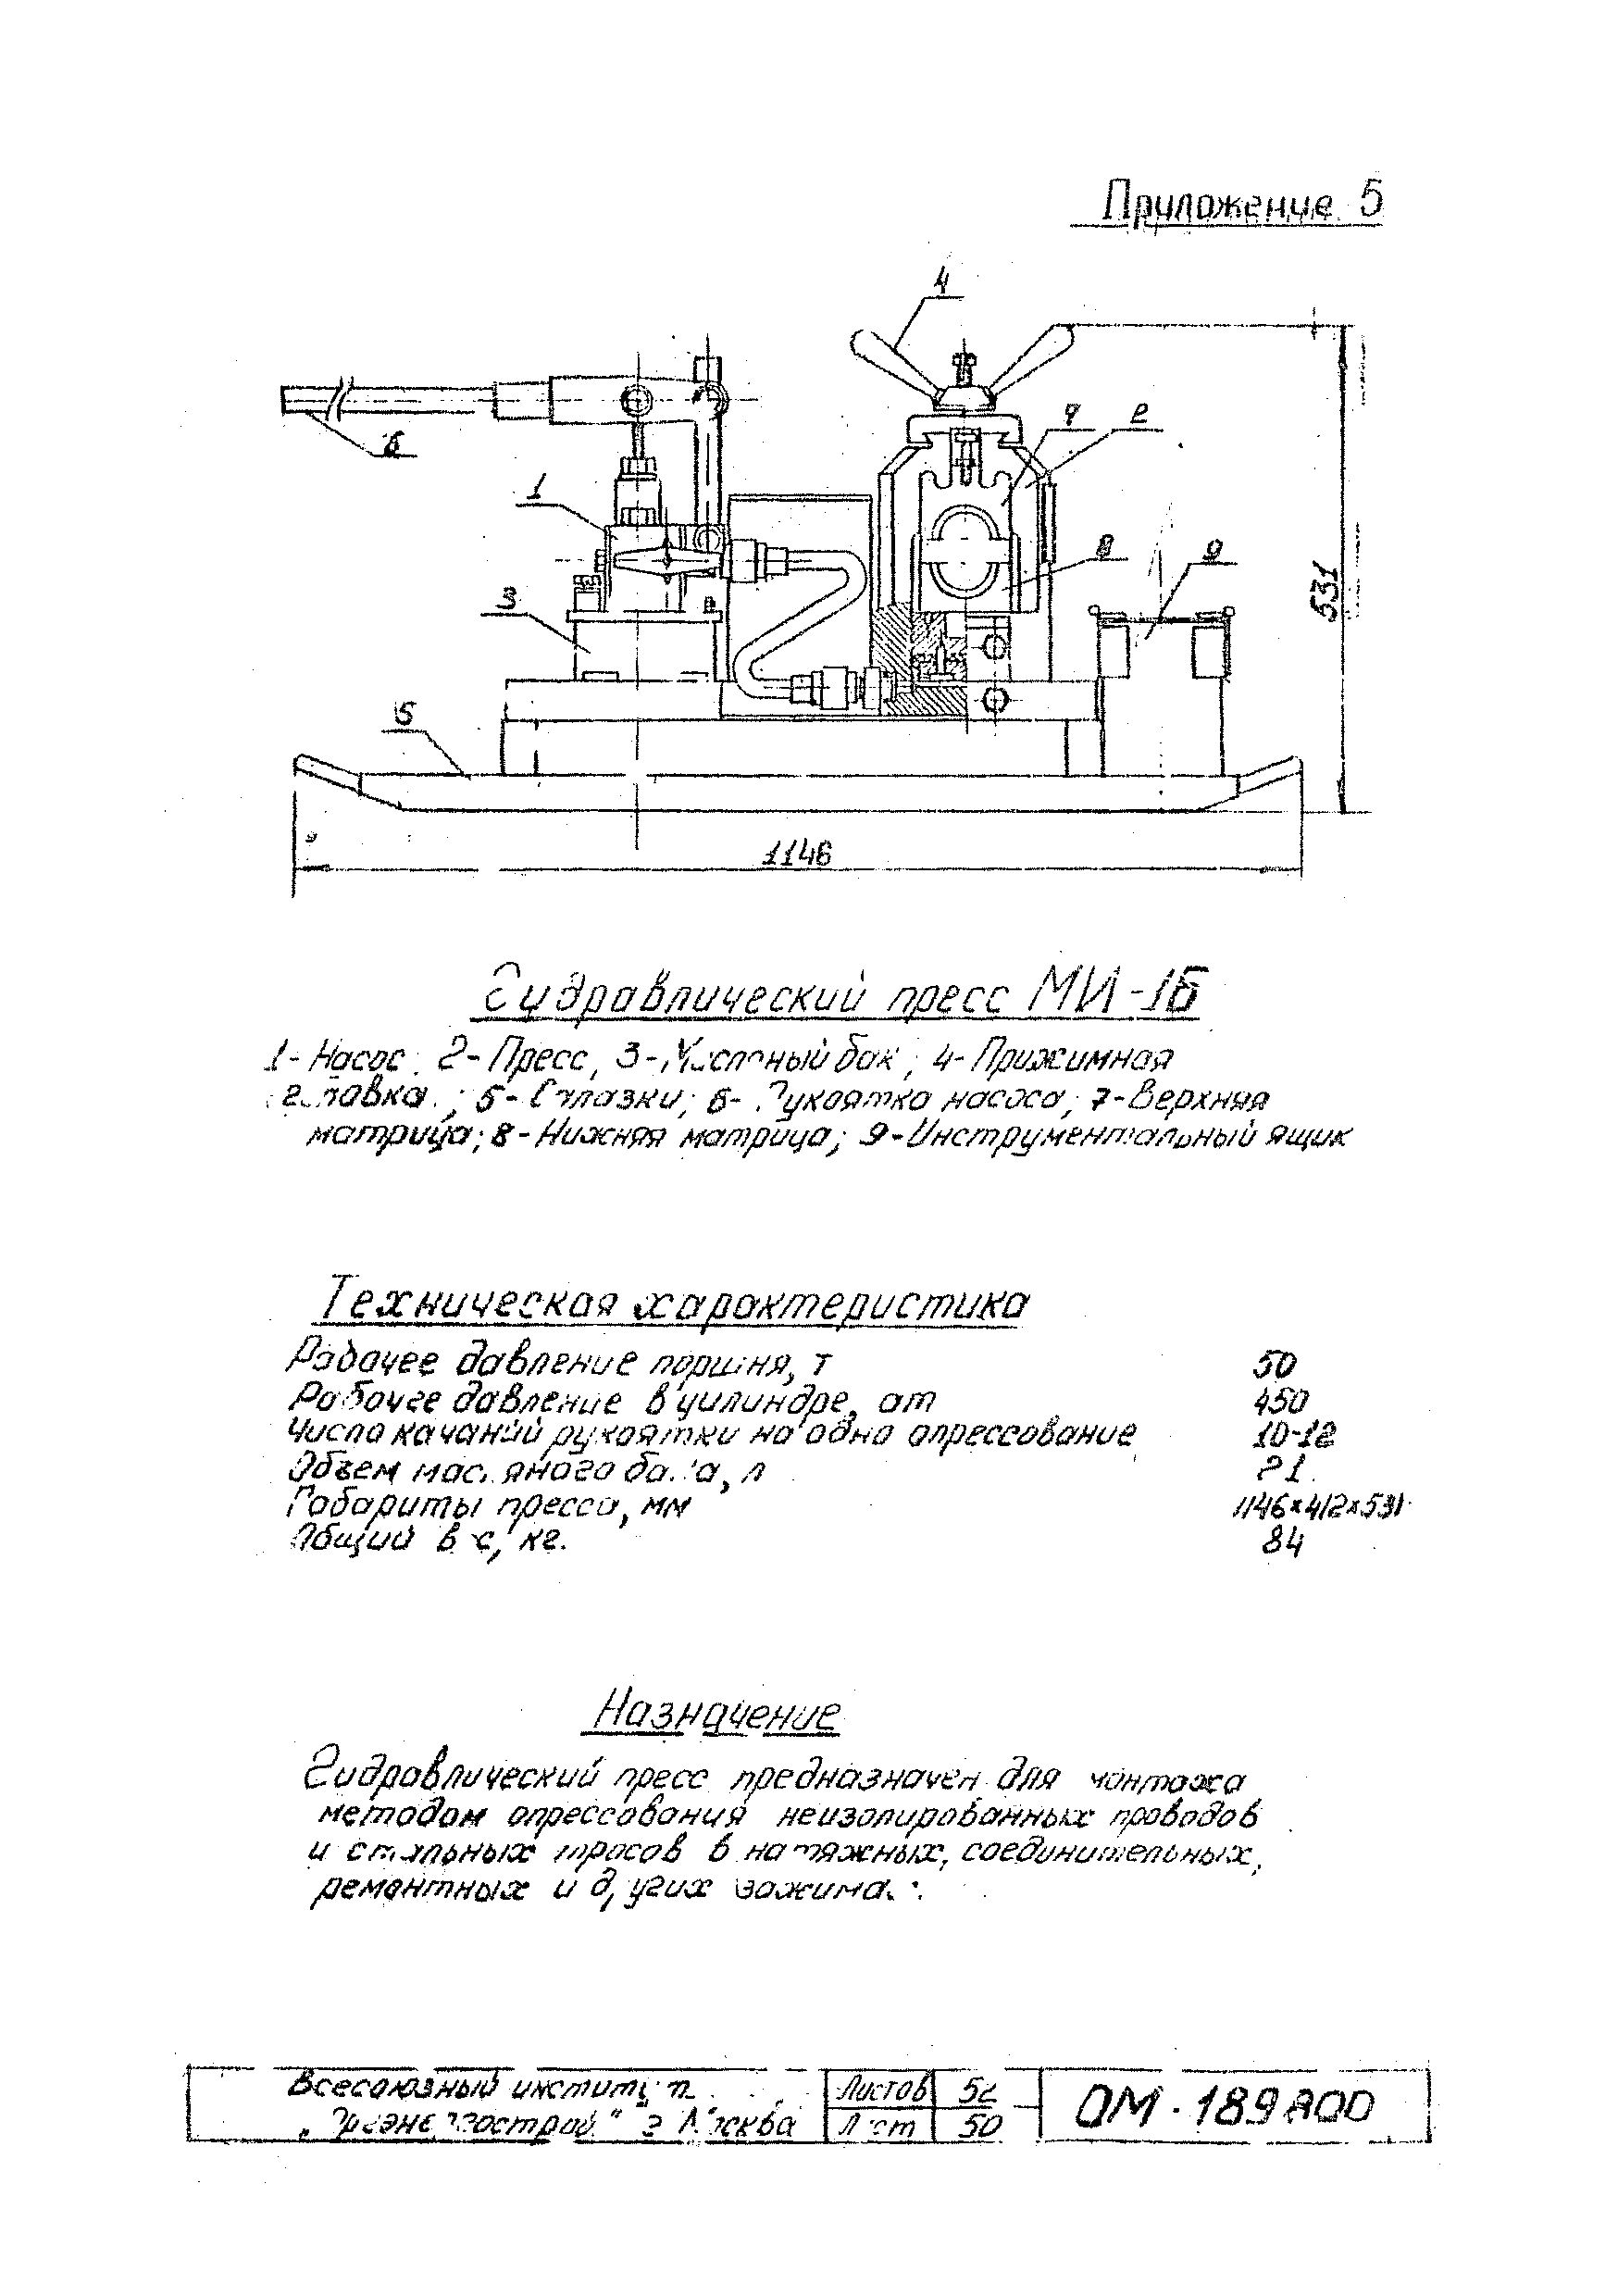 Приложение 5
4
7 2
6
1
8 9
3
531
5
1146
Гидравлический пресс МИ-1Б
1- Насос; 2- Пресс, 3- Масляный бак; 4- Прижимная
головка; 5- Салазки; 6- Рукоятка насоса; 7- Верхняя
матрица; 8- Нижняя матрица; 9- Инструментальный ящик
Техническая характеристика
Рабочее давление поршня, т 50
Рабочее давление в цилиндре, ат 450
Число качаний рукоятки на одно опрессование 10-12
Объем масляного бака, л
Габариты пресса, мм 1146×412×531
Общий вес, кг. 84
Назначение
Гидравлический пресс предназначен для монтажа
методом опрессования неизолированных проводов
и стальных тросов в натяжных, соединительных,
ремонтных и других зажимах.
Всесоюзный институт Листов 52
„Оргэнергострой" г Москва Лист 50
ОМ-189800